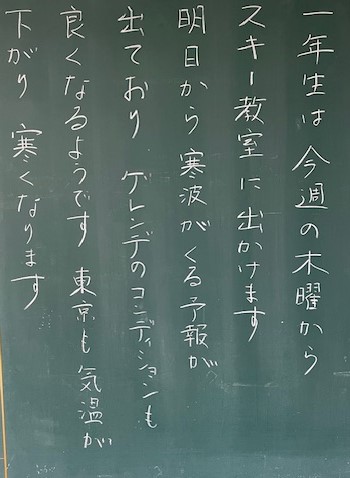 一年生は 今週の木曜から
スキー教室に出かけます
明日から 寒波がくる予報が
出ており ゲレンデのコンディションも
良くなるようです 東京も気温が
下がり 寒くなります